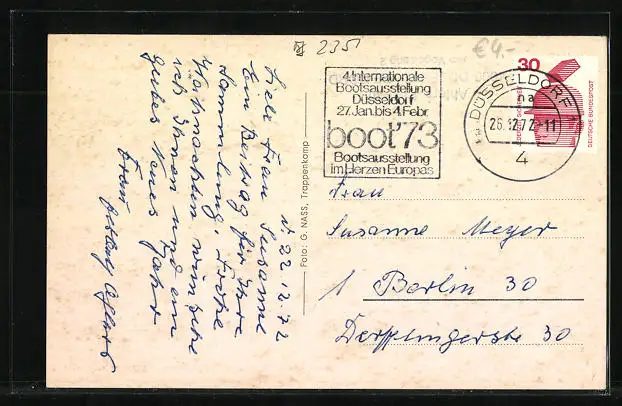 235
€4.-
4. Internationale
Bootsausstellung
Düsseldorf
27. Jan. bis 4. Febr.
boot'73
Bootsausstellung
im Herzen Europas
DÜSSELDORF
na
4
30
DEUTSCHE BUNDESPOST
Foto: G. NASS, Trappenkamp
Frau
Susanne Meyer
1 Berlin 30
Derfflingerstr 30
d. 22.12.72
Liebe Frau Susanne
Ein Beitrag für Ihre
Sammlung. Frohe
Weihnachten wünsche
ich Ihnen und ein
gutes Neues Jahr